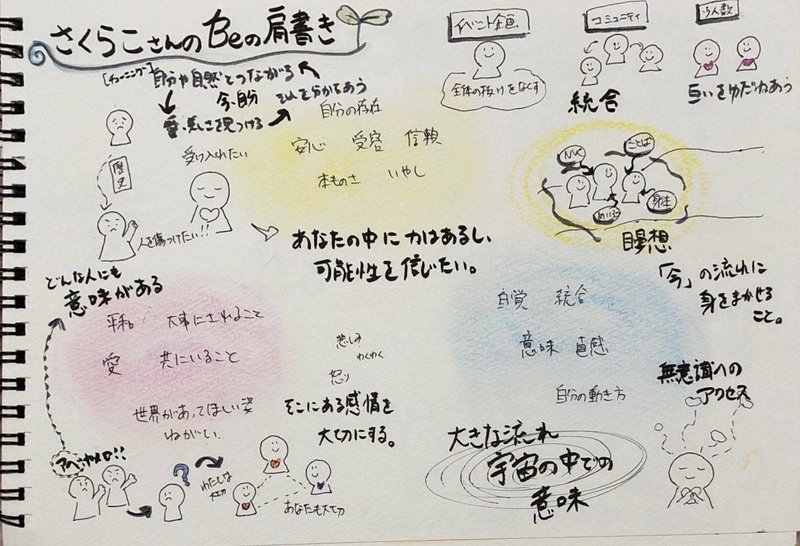 さくらこさんのBeの肩書き
イベント企画
コミュニティ
少人数
全体の抜けをなくす
統合
互いをゆだねあう
自分や自然とつながる
今、自分
それを分かちあう
美しさを見つける
自分の存在
受け入れたい
安心 受容 信頼
本ものさ いやし
歴史
人を傷つけたい!!
あなたの中に力はあるし、
可能性を信じたい。
NVC
ことば
身体
瞑想
「今」の流れに
身をまかせる
こと。
どんな人にも
意味がある
平和。 大事にされること
愛 共にいること
世界があってほしい姿
ねがい。
悲しみ
わくわく
怒り
そこにある感情を
大切にする。
自覚 統合
意味 直感
自分の動き方
無意識への
アクセス
大きな流れ
宇宙の中での
意味
アベヤメロ!!
?
わたしは
大切
あなたも大切